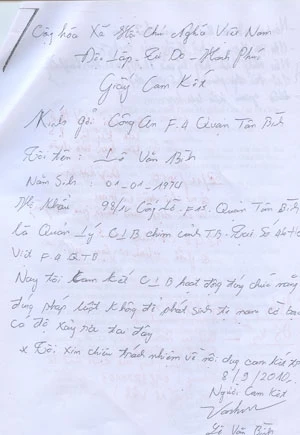 Cộng hòa Xã Hội Chủ Nghĩa Việt Nam
Độc Lập - Tự Do - Hạnh Phúc
Giấy Cam Kết
Kính gởi: Công An F.4 Quận Tân Bình
Tôi tên: Lê Văn Bình
Năm Sinh: 01-01-1974
Hộ Khẩu 98/ Cộng Hò. F Quận Tân Bì
là Quản Lý CLB chim cảnh T.B.
Việt F.4 Q.T.B
Nay tôi Cam kết CLB hoạt động đúng chức năng
đúng pháp luật không để phát sinh tệ nạn cờ bạ
Cá độ,
* Tôi xin chịu trách nhiệm về nội dung cam kết
8/9/2010.
Người Cam Kết
Lê Văn Bình